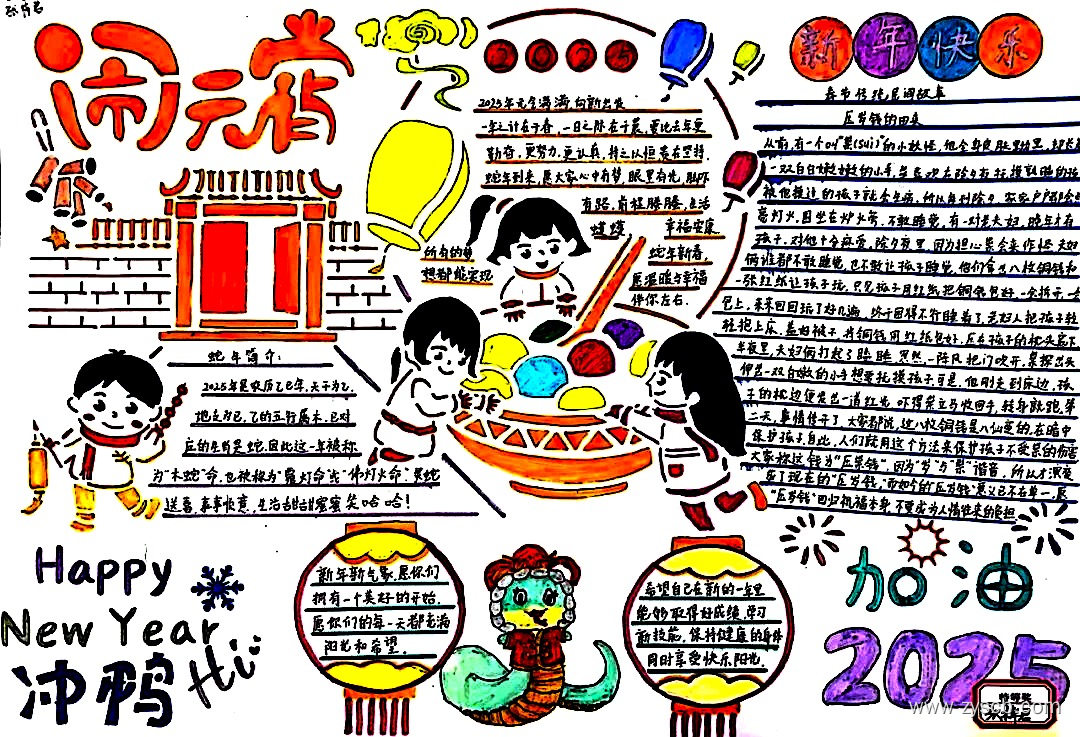 闹元宵
2025
新年快乐
2025年元气满满向新出发
一年之计在于春,一日之际在于晨,要比去年更
勤奋,更努力,更认真,持之以恒贵在坚持,
蛇年到来,愿大家心中有梦,眼里有光,脚下
有路,前程朦朦,生活
幸福安康
蛇年新春,
愿温暖与幸福
伴你左右.
所有的梦
想都能实现
春节传统民间故事
压岁钱的由来
从前,有一个叫"祟(sui)"的小妖怪,他全身
一双白白嫩嫩的小手,
被他摸过的孩子就会生病,所以每到除夕,家家户户都会
亮灯火,围坐在炉火旁,不敢睡觉,有一对老夫妇,晚年才有
孩子,对他十分疼爱,除夕夜里,因为担心祟会来作怪,夫妇
俩谁都不敢睡觉,也不敢让孩子睡觉,他们拿出八枚铜钱和
一张红纸让孩子玩,只见孩子用红纸把铜钱包好,一会拆开,一会
包上,来来回回玩了好几遍,终于困得不行睡着了,老妇人把孩子轻
轻抱上床,盖好被子,将铜钱用红纸包好,压在孩子的枕头底下
半夜里,夫妇俩打起了瞌睡,突然,一阵风把门吹开,祟探出头
伸出一双白嫩的小手想要抚摸孩子,可是,他刚走到床边,孩
子的枕边便发出一道红光,吓得祟立马收回手,转身就跑,第
二天,事情传了,大家都说,这八枚铜钱是八仙变的,在暗中
保护孩子,自此,人们就用这个方法来保护孩子不受祟的伤害
大家称这钱为"压祟钱",因为"岁"与"祟"谐音,所以才演变
成了现在的"压岁钱",而如今的"压岁钱"意义已不在单一,愿
"压岁钱"回归祝福本身,不要成为人情往来的负担
蛇年简介:
2025年是农历乙巳年,天干为乙,
地支为巳,乙的五行属木,巳对
应的生肖是蛇,因此这一年被称
为"木蛇"命,也被称为"覆灯命"或"佛灯火命",灵蛇
送喜,事事快意,生活甜甜蜜蜜笑哈哈!
Happy
New Year
冲鸭 Hi
新年新气象,愿你们
拥有一个美好的开始,
愿你们的每一天都充满
阳光和希望.
希望自己在新的一年里
能够取得好成绩,学习
新技能,保持健康的身体
同时享受快乐阳光.
加油
2025
特等奖
www.zyscb.com